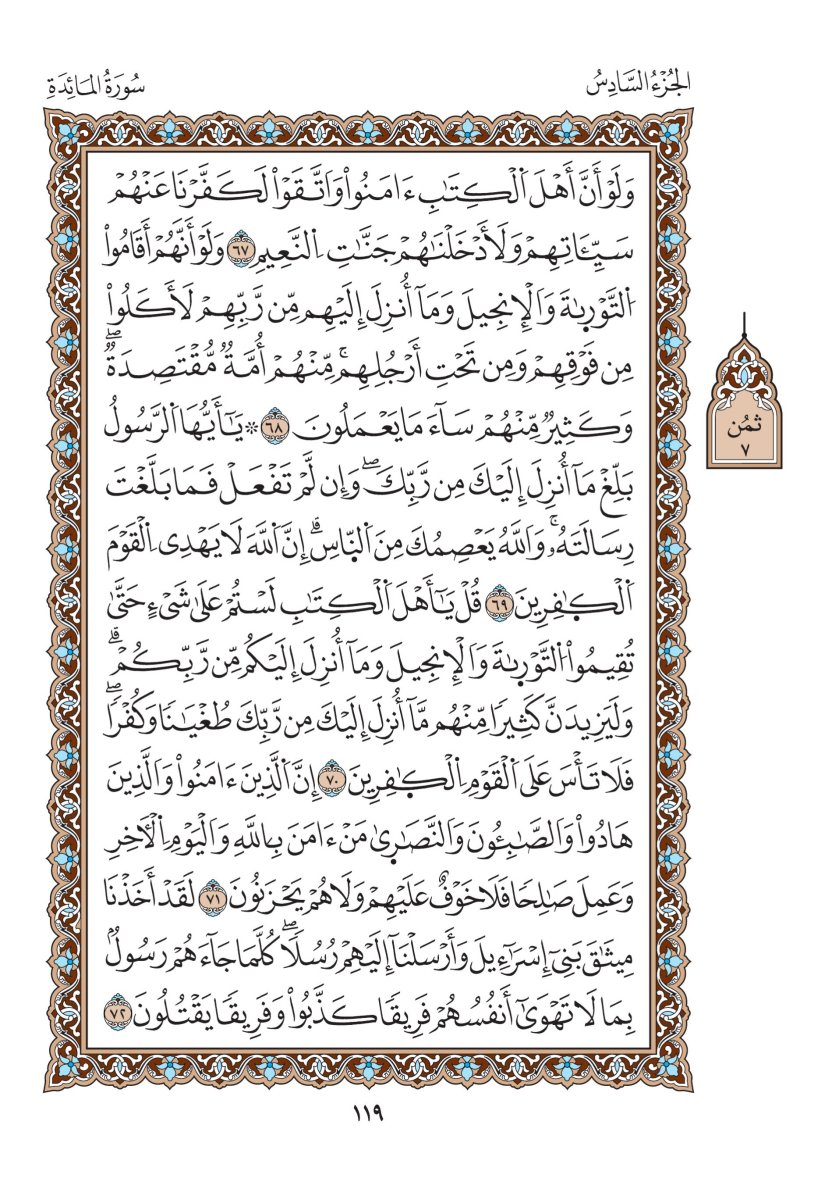 الجُزْءُ السَّادِسُ
سُورَةُ المَائِدَةِ
وَلَوْ أَنَّ أَهْلَ اَ۬لْكِتَٰبِ ءَامَنُواْ وَاتَّقَوْاْ لَكَفَّرْنَا عَنْهُمْ
سَيِّـَٔاتِهِمْ وَلَأَدْخَلْنَٰهُمْ جَنَّٰتِ اِ۬لنَّعِيمِ ٦٧ وَلَوْ أَنَّهُمْ أَقَامُواْ
اُ۬لتَّوْر۪ىٰةَ وَالْإِنجِيلَ وَمَآ أُنزِلَ إِلَيْهِم مِّن رَّبِّهِمْ لَأَكَلُواْ
مِن فَوْقِهِمْ وَمِن تَحْتِ أَرْجُلِهِمۚ مِّنْهُمْ أُمَّةٌ مُّقْتَصِدَةٌۖ
وَكَثِيرٌ مِّنْهُمْ سَآءَ مَا يَعْمَلُونَ ٦٨ ۞ يَٰٓأَيُّهَا اَ۬لرَّسُولُ
بَلِّغْ مَآ أُنزِلَ إِلَيْكَ مِن رَّبِّكَۖ وَإِن لَّمْ تَفْعَلْ فَمَا بَلَّغْتَ
رِسَالَتَهُۥۚ وَاللَّهُ يَعْصِمُكَ مِنَ اَ۬لنّ۪اسِۗ إِنَّ اَ۬للَّهَ لَا يَهْدِى اِ۬لْقَوْمَ
اَ۬لْكٰ۪فِرِينَ ٦٩ قُلْ يَٰٓأَهْلَ اَ۬لْكِتَٰبِ لَسْتُمْ عَلَىٰ شَىْءٍ حَتَّىٰ
تُقِيمُواْ اُ۬لتَّوْر۪ىٰةَ وَالْإِنجِيلَ وَمَآ أُنزِلَ إِلَيْكُم مِّن رَّبِّكُمْۗ
وَلَيَزِيدَنَّ كَثِيرًا مِّنْهُم مَّآ أُنزِلَ إِلَيْكَ مِن رَّبِّكَ طُغْيَٰنًا وَكُفْرًاۖ
فَلَا تَأْسَ عَلَى اَ۬لْقَوْمِ اِ۬لْكٰ۪فِرِينَ ٧٠ إِنَّ اَ۬لَّذِينَ ءَامَنُواْ وَالَّذِينَ
هَادُواْ وَالصَّٰبِـُٔونَ وَالنَّصَٰر۪ىٰ مَنْ ءَامَنَ بِاللَّهِ وَالْيَوْمِ اِ۬لْأٓخِرِ
وَعَمِلَ صَٰلِحًا فَلَا خَوْفٌ عَلَيْهِمْ وَلَا هُمْ يَحْزَنُونَ ٧١ لَقَدْ أَخَذْنَا
مِيثَٰقَ بَنِىٓ إِسْرَٰٓءِيلَ وَأَرْسَلْنَآ إِلَيْهِمْ رُسُلًاۖ كُلَّمَا جَآءَهُمْ رَسُولٌۢ
بِمَا لَا تَهْوَىٰٓ أَنفُسُهُمْ فَرِيقًا كَذَّبُواْ وَفَرِيقًا يَقْتُلُونَ ٧٢
ثُمُن
٧
١١٩